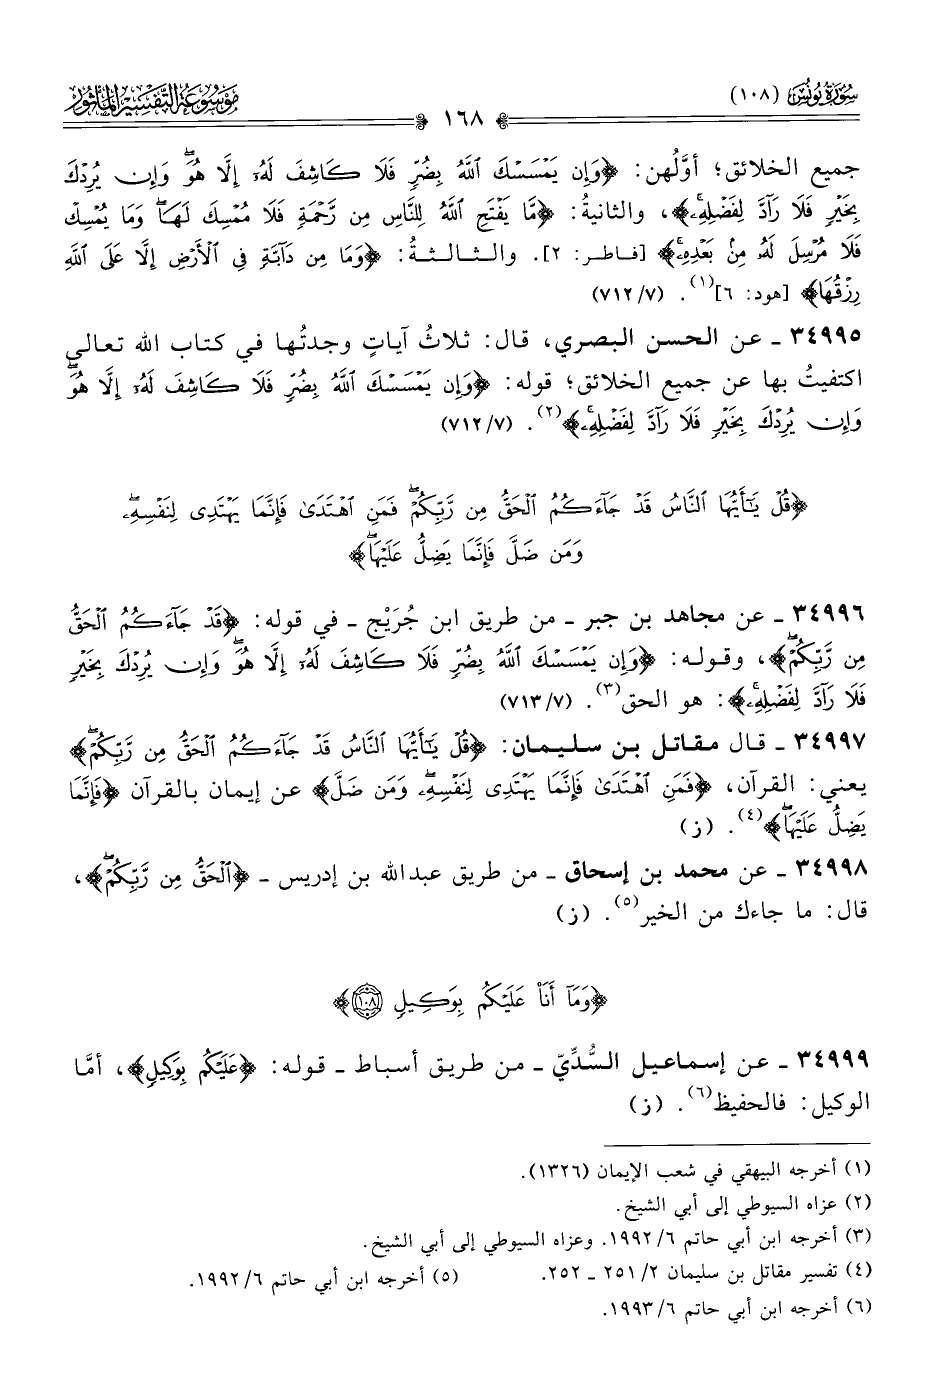 سورة يونس (١٠٨)
١٦٨
موسوعة التفسير المأثور
جميع الخلائق؛ أوَّلُهن: ﴿وَإِن يَمْسَسْكَ ٱللَّهُ بِضُرٍّ فَلَا كَاشِفَ لَهُۥٓ إِلَّا هُوَۖ وَإِن يُرِدْكَ
بِخَيْرٍ فَلَا رَآدَّ لِفَضْلِهِۦۚ﴾، والثانية: ﴿مَّا يَفْتَحِ ٱللَّهُ لِلنَّاسِ مِن رَّحْمَةٍ فَلَا مُمْسِكَ لَهَاۖ وَمَا يُمْسِكْ
فَلَا مُرْسِلَ لَهُۥ مِنۢ بَعْدِهِۦۚ﴾ [فاطر: ٢]. والثالثةُ: ﴿وَمَا مِن دَآبَّةٍ فِى ٱلْأَرْضِ إِلَّا عَلَى ٱللَّهِ
رِزْقُهَا﴾ [هود: ٦](١). (٧/٧١٢)
٣٤٩٩٥ ـ عن الحسن البصري، قال: ثلاثُ آياتٍ وجدتُها في كتاب الله تعالى
اكتفيتُ بها عن جميع الخلائق؛ قوله: ﴿وَإِن يَمْسَسْكَ ٱللَّهُ بِضُرٍّ فَلَا كَاشِفَ لَهُۥٓ إِلَّا هُوَۖ
وَإِن يُرِدْكَ بِخَيْرٍ فَلَا رَآدَّ لِفَضْلِهِۦۚ﴾(٢). (٧/٧١٢)
﴿قُلْ يَٰٓأَيُّهَا ٱلنَّاسُ قَدْ جَآءَكُمُ ٱلْحَقُّ مِن رَّبِّكُمْۖ فَمَنِ ٱهْتَدَىٰ فَإِنَّمَا يَهْتَدِى لِنَفْسِهِۦۖ
وَمَن ضَلَّ فَإِنَّمَا يَضِلُّ عَلَيْهَاۖ﴾
٣٤٩٩٦ ـ عن مجاهد بن جبر ـ من طريق ابن جُرَيْج ـ في قوله: ﴿قَدْ جَآءَكُمُ ٱلْحَقُّ
مِن رَّبِّكُمْۖ﴾، وقوله: ﴿وَإِن يَمْسَسْكَ ٱللَّهُ بِضُرٍّ فَلَا كَاشِفَ لَهُۥٓ إِلَّا هُوَۖ وَإِن يُرِدْكَ بِخَيْرٍ
فَلَا رَآدَّ لِفَضْلِهِۦۚ﴾: هو الحق(٣). (٧/٧١٣)
٣٤٩٩٧ ـ قال مقاتل بن سليمان: ﴿قُلْ يَٰٓأَيُّهَا ٱلنَّاسُ قَدْ جَآءَكُمُ ٱلْحَقُّ مِن رَّبِّكُمْۖ﴾
يعني: القرآن، ﴿فَمَنِ ٱهْتَدَىٰ فَإِنَّمَا يَهْتَدِى لِنَفْسِهِۦۖ وَمَن ضَلَّ﴾ عن إيمان بالقرآن ﴿فَإِنَّمَا
يَضِلُّ عَلَيْهَاۖ﴾(٤). (ز)
٣٤٩٩٨ ـ عن محمد بن إسحاق ـ من طريق عبدالله بن إدريس ـ ﴿ٱلْحَقُّ مِن رَّبِّكُمْۖ﴾،
قال: ما جاءك من الخير(٥). (ز)
﴿وَمَآ أَنَا۠ عَلَيْكُم بِوَكِيلٍ ١٠٨﴾
٣٤٩٩٩ ـ عن إسماعيل السُّدِّيّ ـ من طريق أسباط ـ قوله: ﴿عَلَيْكُم بِوَكِيلٍ﴾، أمَّا
الوكيل: فالحفيظ(٦). (ز)
(١) أخرجه البيهقي في شعب الإيمان (١٣٢٦).
(٢) عزاه السيوطي إلى أبي الشيخ.
(٣) أخرجه ابن أبي حاتم ٦/ ١٩٩٢. وعزاه السيوطي إلى أبي الشيخ.
(٤) تفسير مقاتل بن سليمان ٢/ ٢٥١ ـ ٢٥٢. (٥) أخرجه ابن أبي حاتم ٦/ ١٩٩٢.
(٦) أخرجه ابن أبي حاتم ٦/ ١٩٩٣.